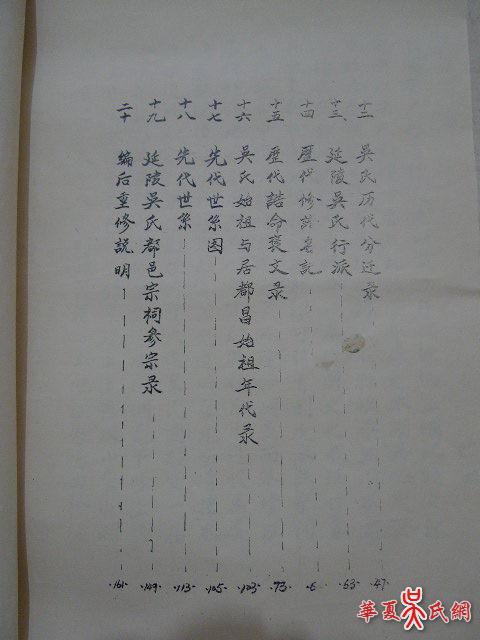 十二 吴氏历代分迁录 47
十三 延陵吴氏行派 53
十四 歷代修譜名記 6
十五 歷代誥命褒文录 73
十六 吴氏始祖与居都昌始祖年代录 103
十七 先代世系图 105
十八 先代世系 113
十九 延陵吴氏都邑宗祠参宗录 149
二十 编后重修説明 161
華夏吴氏網